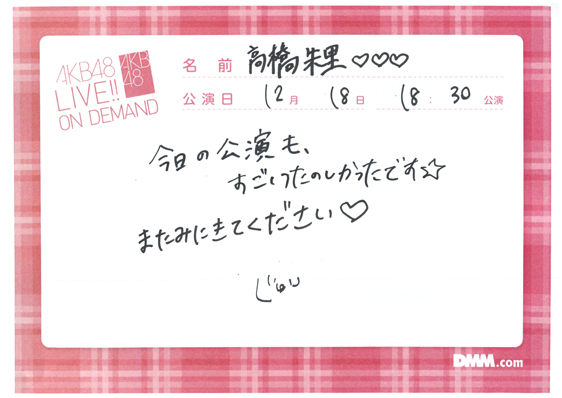 AKB48
LIVE!!
ON DEMAND
AKB
48
名 前 高橋朱里♡♡♡
公演日 12月 18日 18:30公演
今日の公演も、
すごくたのしかったです☆☆
またみにきてください♡
じゅり
DMM.com